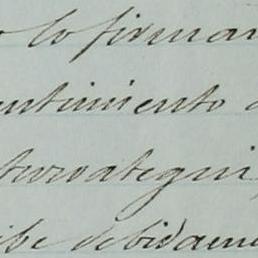 o lo firman
ntimiento
turoategui
ibe debidame